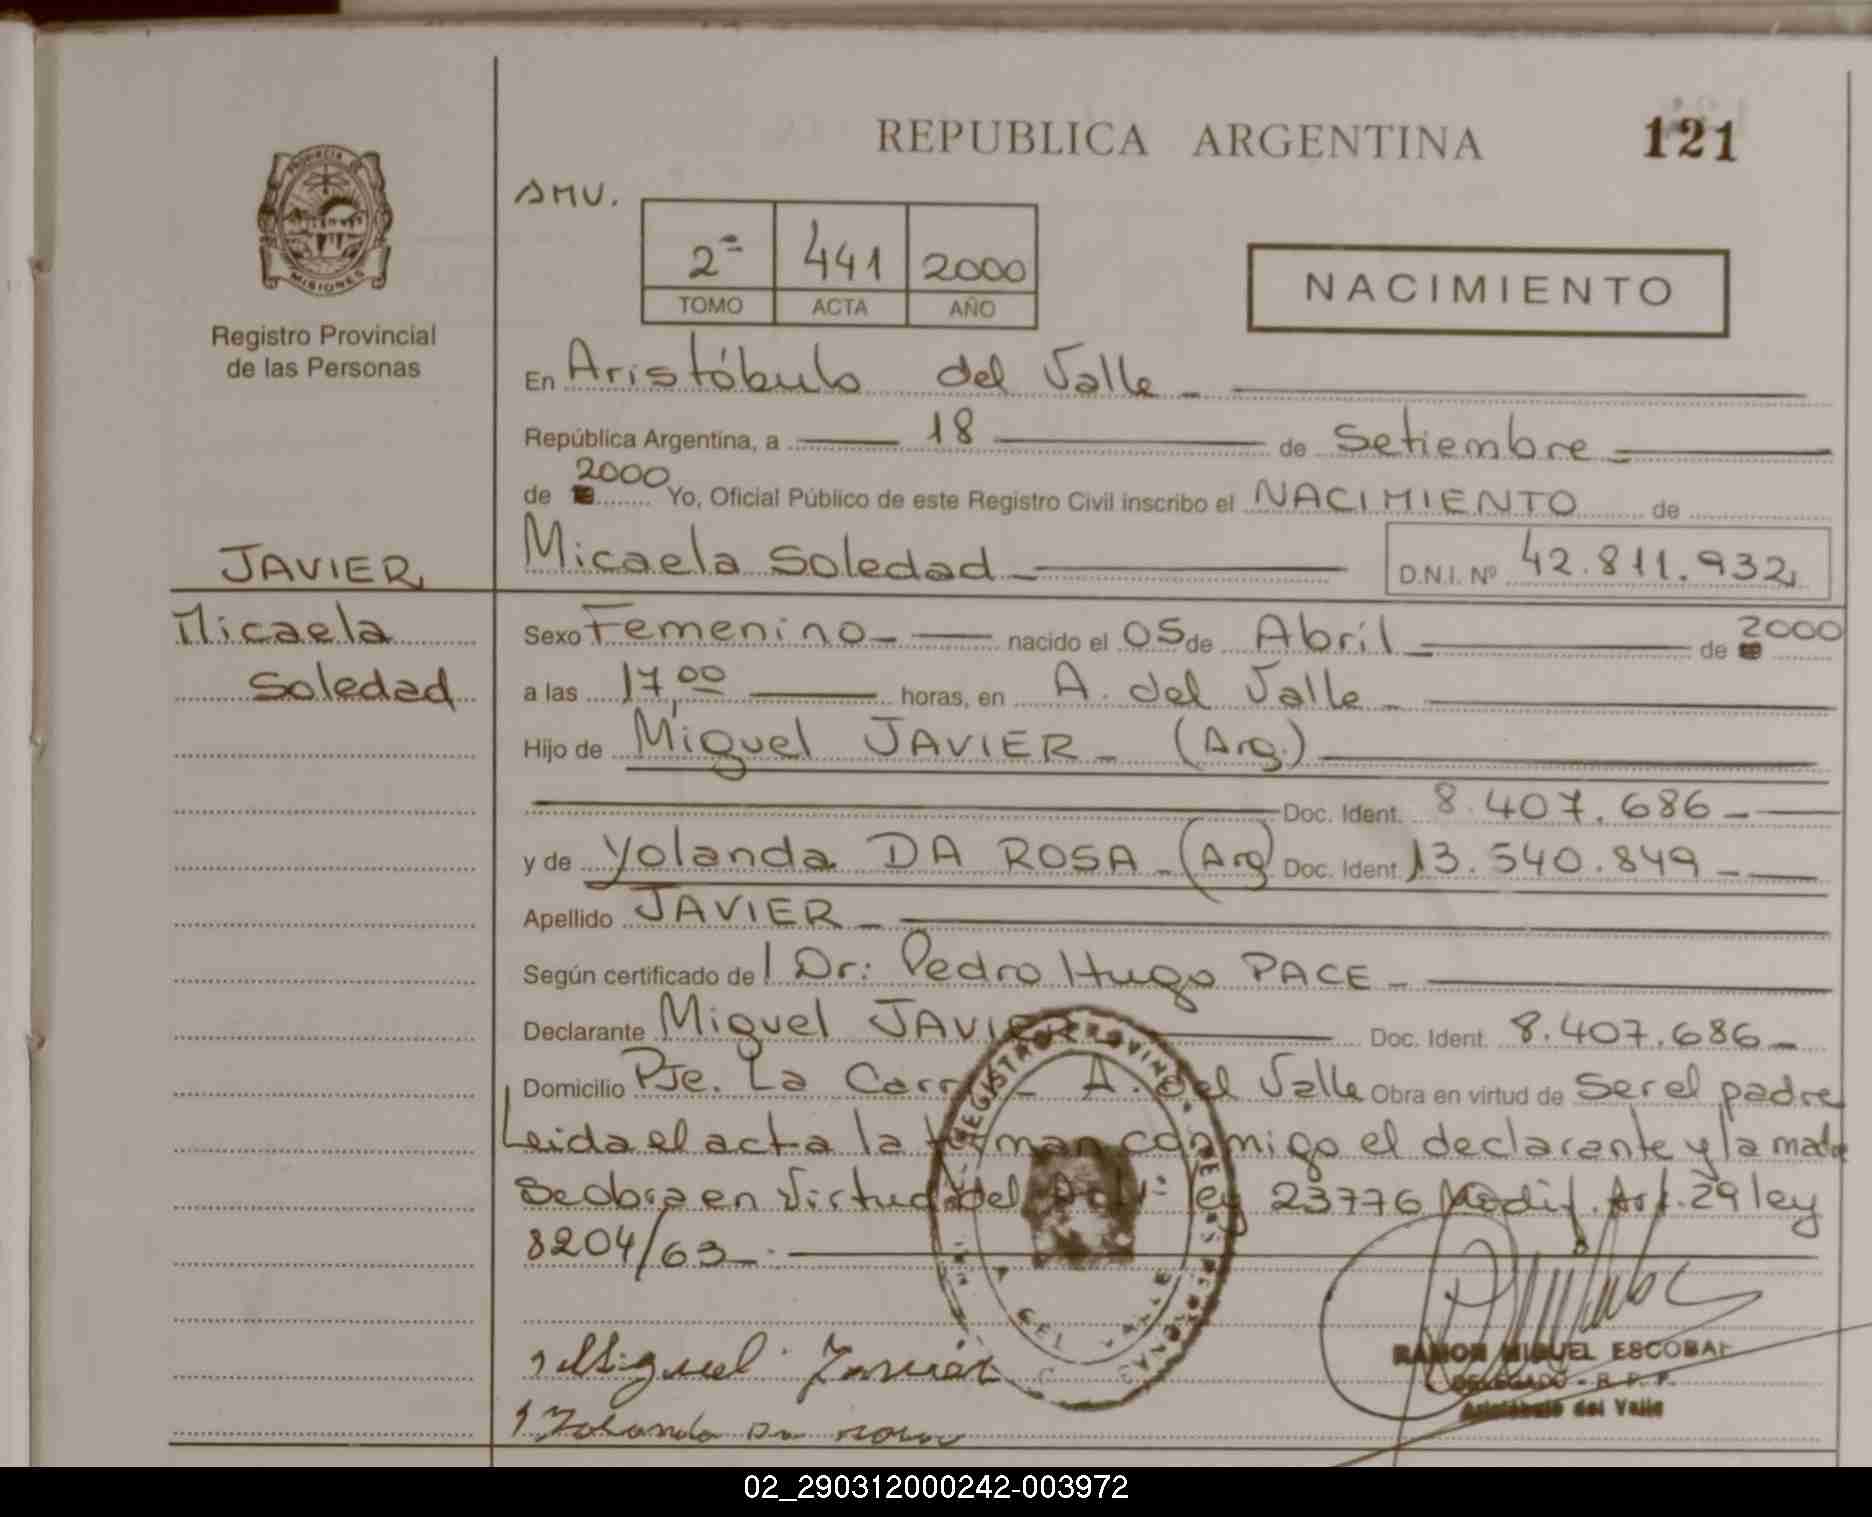 REPUBLICA ARGENTINA
121
PROVINCIA DE
MISIONES
Registro Provincial
de las Personas
SMV.
2ª 441 2000
TOMO ACTA AÑO
NACIMIENTO
En Aristóbulo del Valle
República Argentina, a 18 de Setiembre
de 2000 Yo, Oficial Público de este Registro Civil inscribo el NACIMIENTO de
Micaela Soledad D.N.I. Nº 42.811.932
JAVIER
Micaela
Soledad
Sexo Femenino nacido el 05 de Abril de 2000
a las 17,00 horas, en A. del Valle
Hijo de Miguel JAVIER (Arg.)
Doc. Ident. 8.407.686
y de Yolanda DA ROSA (Arg) Doc. Ident. 13.540.849
Apellido JAVIER
Según certificado de l Dr: Pedro Hugo PACE
Declarante Miguel JAVIER Doc. Ident. 8.407.686
Domicilio Pje. La A. del Valle Obra en virtud de Ser el padre
Leida el acta la firman conmigo el declarante y la madre
Se obra en Virtud del ley 23776 Modif. Art. 29 ley
8204/63
Miguel Javier
Yolanda Da Rosa
RAMON MIGUEL ESCOBAR
DELEGADO - R. P. P.
Aristóbulo del Valle
02_290312000242-003972